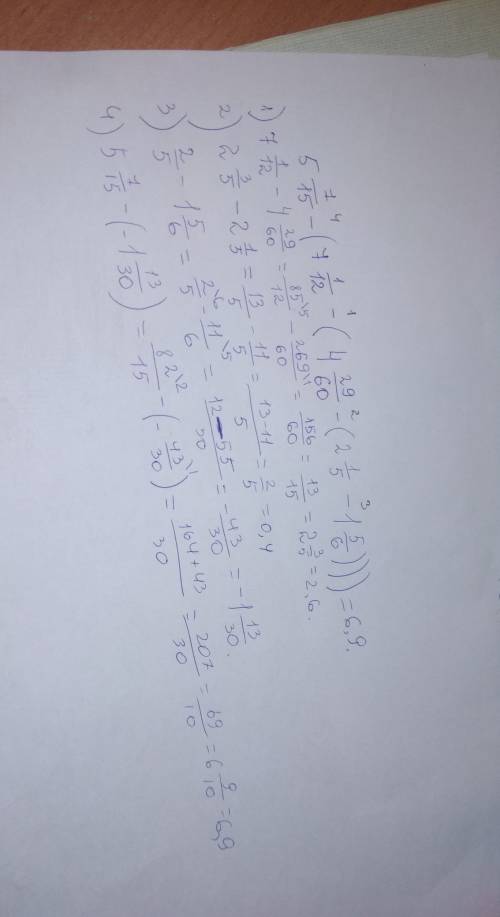 5 7/15 ⁴− (7 1/12 ¹− (4 29/60 ²− (2 1/5 ³− 1 5/6)))) = 6,9.
1) 7 1/12 − 4 29/60 = 85\5/12 − 269\1/60 = 156/60 = 13/15 = 2 3/5 = 2,6.
2) 2 3/5 − 2 1/5 = 13/5 − 11/5 = 13-11/5 = 2/5 = 0,4
3) 2/5 − 1 5/6 = 2\6/5 − 11\5/6 = 12−55/30 = −43/30 = −1 13/30.
4) 5 7/15 − (−1 13/30) = 82\2/15 − (−43\1/30) = 164+43/30 = 207/30 = 69/10 = 6 9/10 = 6,9